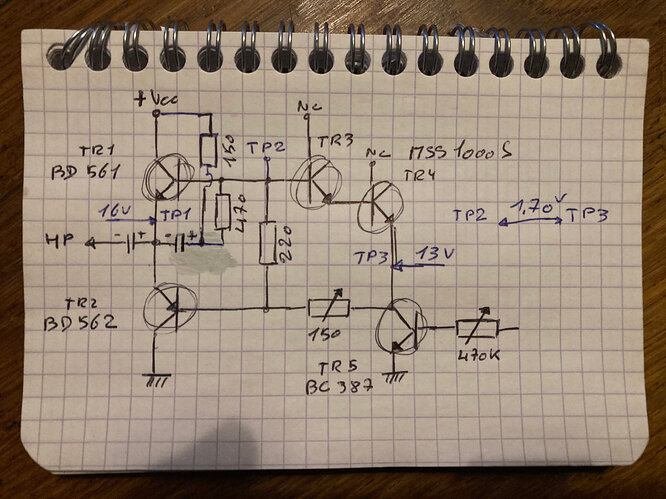 +Vcc
NC
TR1
BD 561
150
TP2
TR3
NC
MSS1000S
TR4
16V
TP1
470
TP2
1.70V
TP3
HP
- +
- +
220
TP3
13V
TR2
BD 562
150
470K
TR5
BC 387